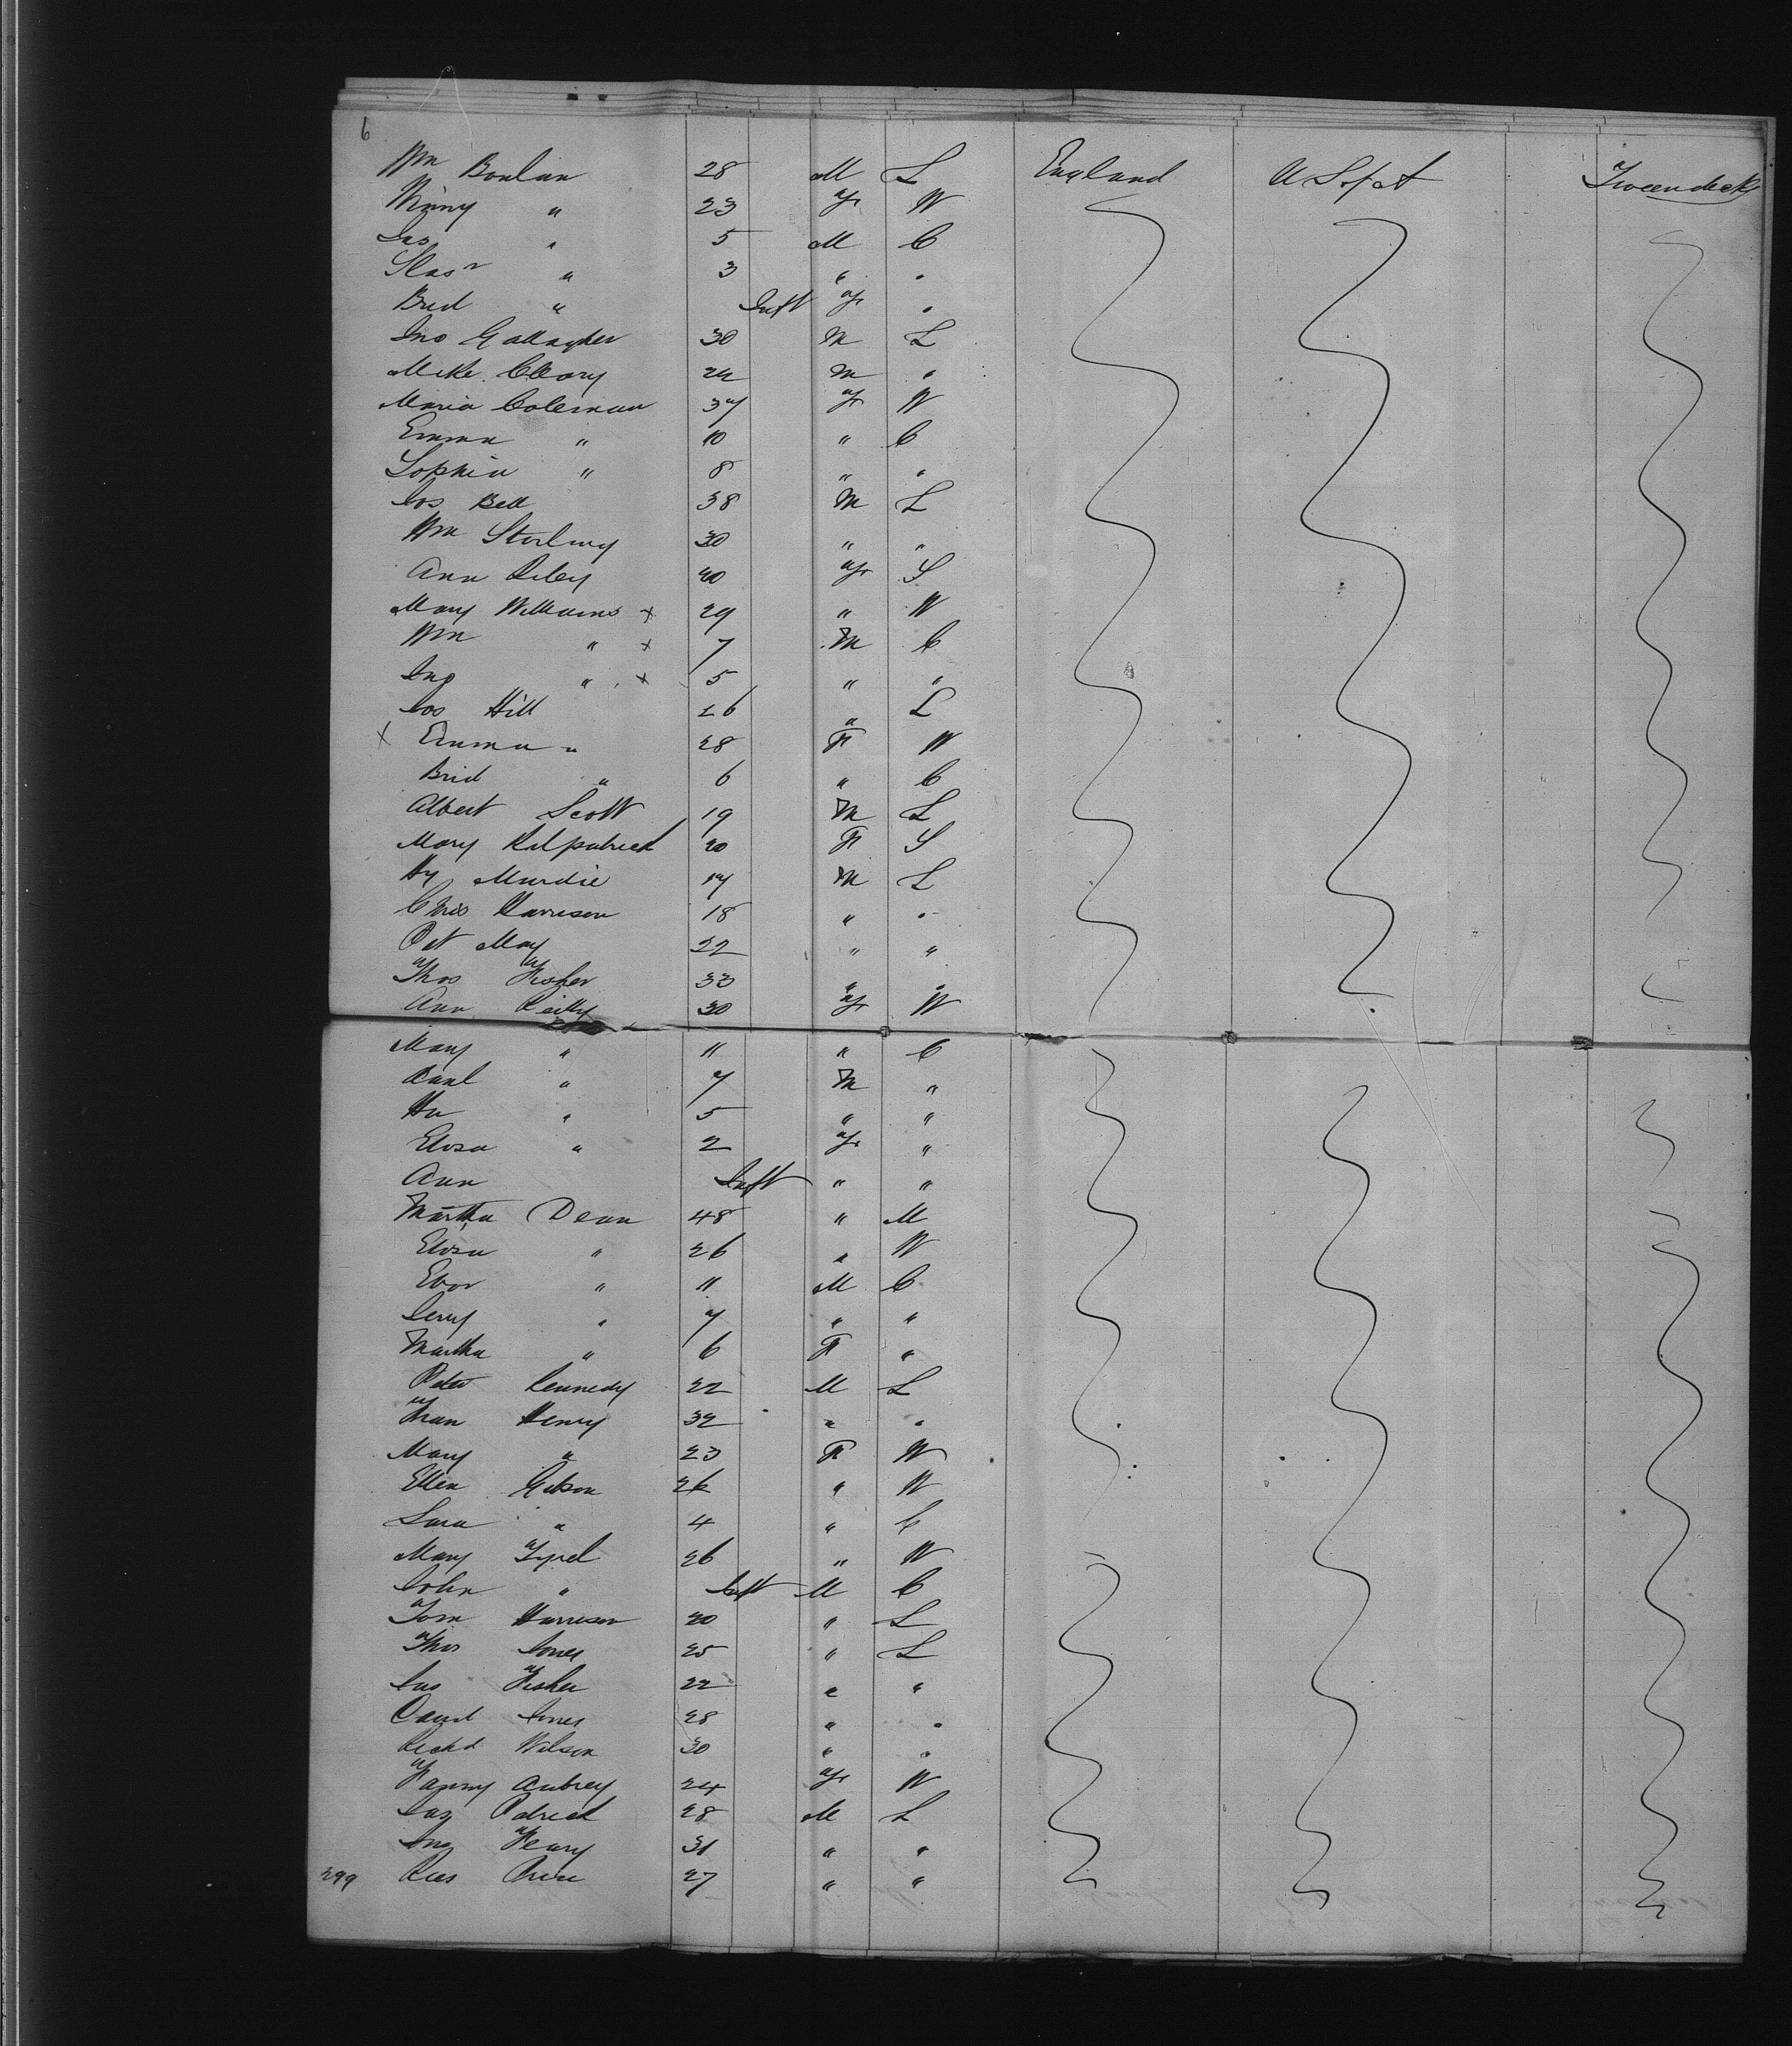 6
Wm Bonlan 28 M L England U S of A Tweendecks
Minny " 23 F W
Jas " 5 M C
" 3 " "
Brid " Inft F "
Jno Gallagher 30 M L
Mike Cleary 24 M "
Maria Coleman 37 F W
Emma " 10 " C
Sophia " 8 " "
Jos Bell 38 M L
Wm Sterling 30 " "
Ann Riley 40 F S
Mary Williams x 29 " W
Wm " x 7 M C
Jno " x 5 " "
Jos Hill 26 " L
x Emma " 28 F W
Brid " 6 " C
Albert Scott 19 M L
Mary Kilpatrick 20 F S
Hy Murdie 17 M L
Chris Harrison 18 " "
Pat May 22 " "
Thos Fisher 33 " "
Ann Reilly 30 F W
Mary " 11 " C
" 7 M "
" 5 " "
Eliza " 2 F "
Ann Inft " "
Martha Dean 48 " M
Eliza " 26 " W
" 11 M C
Jerry " 7 " "
Martha " 6 F "
Peter Kennedy 22 M L
Fran Henry 32 " "
Mary " 23 F W
Ellen Gibson 26 " W
Sara " 4 " C
Mary Tyrel 26 " W
John " Inft M C
Tom Harrison 20 " L
Thos Jones 25 " L
Jas Fisher 22 " "
David Jones 28 " "
Richd Wilson 30 " "
Fanny Aubrey 24 F W
Jas Patrick 28 M L
Jno Feary 31 " "
299 Rees 27 " "